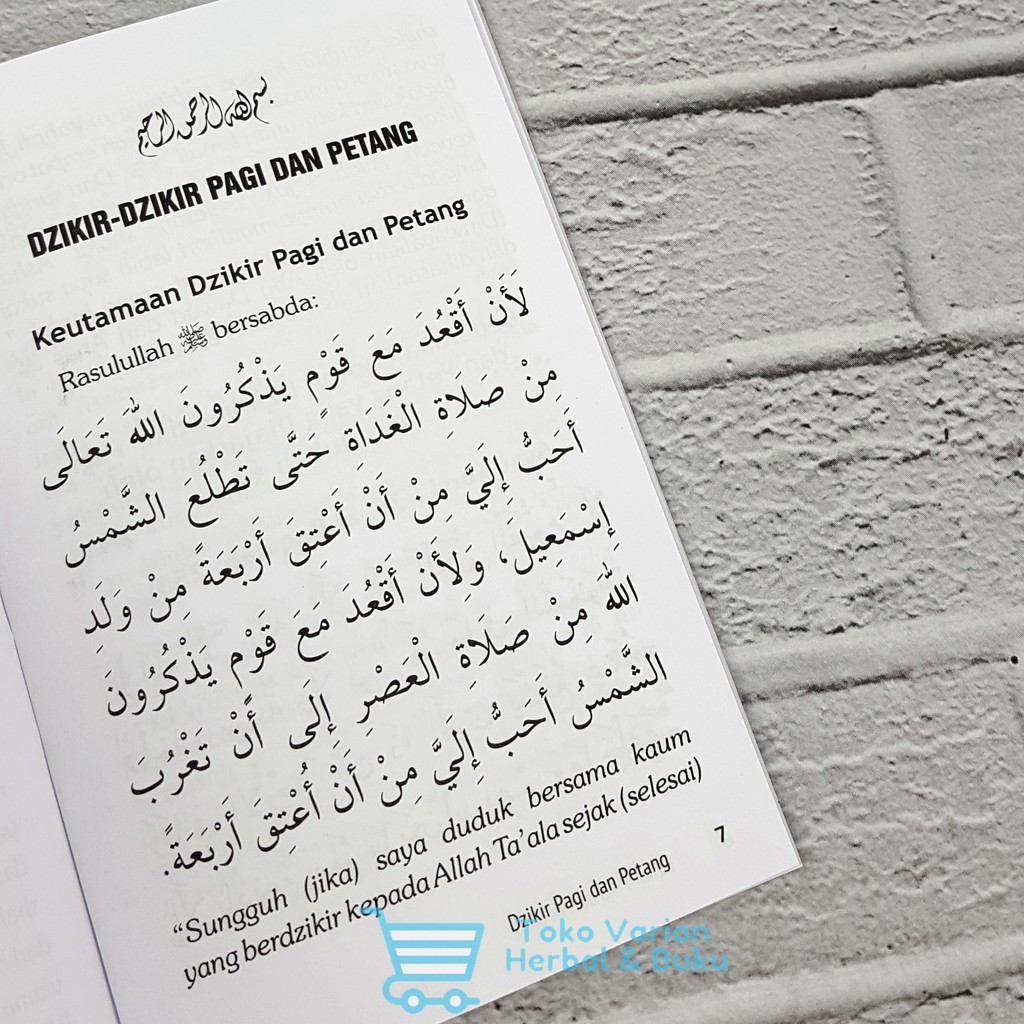 بسم الله الرحمن الرحيم
DZIKIR-DZIKIR PAGI DAN PETANG
Keutamaan Dzikir Pagi dan Petang
Rasulullah ﷺ bersabda:
لَأَنْ أَقْعُدَ مَعَ قَوْمٍ يَذْكُرُونَ اللهَ تَعَالَى
مِنْ صَلَاةِ الْغَدَاةِ حَتَّى تَطْلُعَ الشَّمْسُ
أَحَبُّ إِلَيَّ مِنْ أَنْ أَعْتِقَ أَرْبَعَةً مِنْ وَلَدِ
إِسْمَعِيلَ، وَلِأَنْ أَقْعُدَ مَعَ قَوْمٍ يَذْكُرُونَ
اللهَ مِنْ صَلَاةِ الْعَصْرِ إِلَى أَنْ تَغْرُبَ
الشَّمْسُ أَحَبُّ إِلَيَّ مِنْ أَنْ أُعْتِقَ أَرْبَعَةً.
“Sungguh (jika) saya duduk bersama kaum
yang berdzikir kepada Allah Ta’ala sejak (selesai)
Dzikir Pagi dan Petang
7
Toko Varian
Herbal & Buku